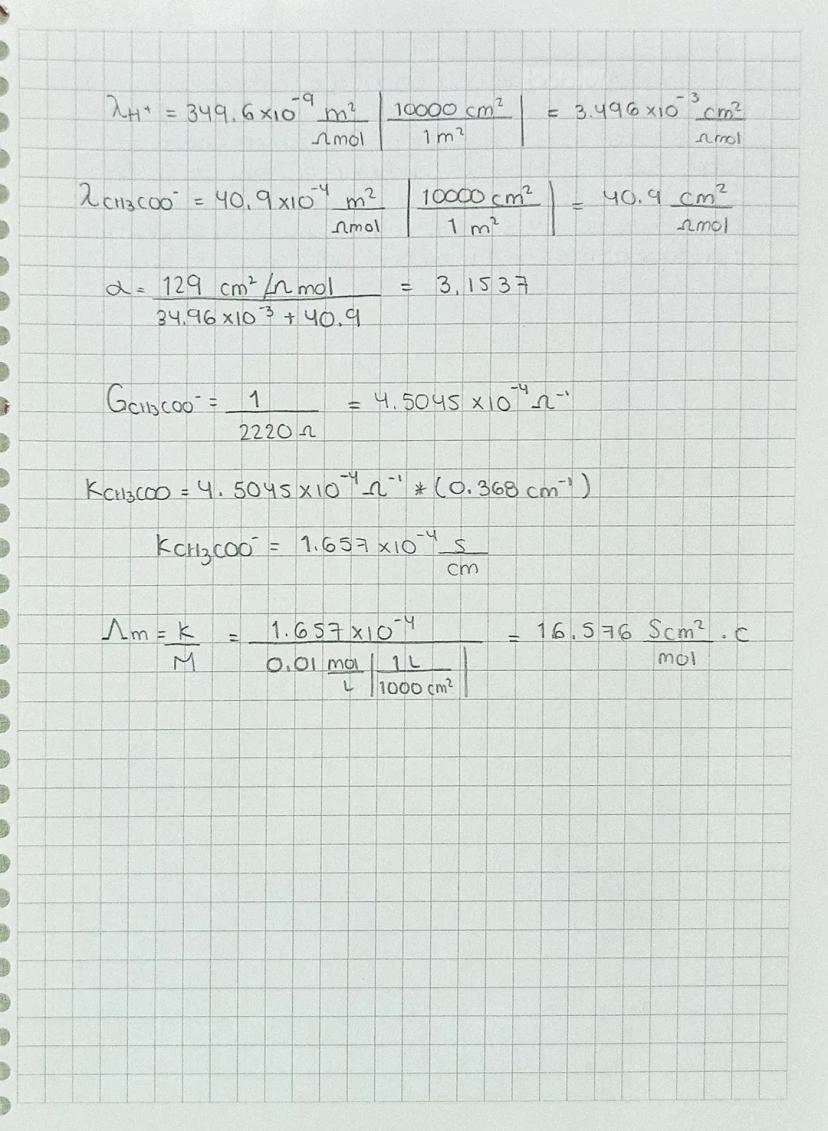 λH⁺ = 349.6×10⁻⁹ m²/Ωmol | 10000 cm²/1 m² | = 3.496×10⁻³ cm²/Ωmol
λCH₃COO⁻ = 40.9×10⁻⁴ m²/Ωmol | 10000 cm²/1 m² | = 40.9 cm²/Ωmol
α = 129 cm²/Ω mol / 34.96×10⁻³ + 40.9 = 3.1537
GCH₃COO⁻ = 1/2220 Ω = 4.5045 ×10⁻⁴ Ω⁻¹
KCH₃COO = 4.5045×10⁻⁴ Ω⁻¹ * (0.368 cm⁻¹)
KCH₃COO⁻ = 1.657 ×10⁻⁴ S/cm
Λm = K/M = 1.657×10⁻⁴ / 0.01 mol/L | 1L/1000 cm² | = 16.576 Scm²/mol . C